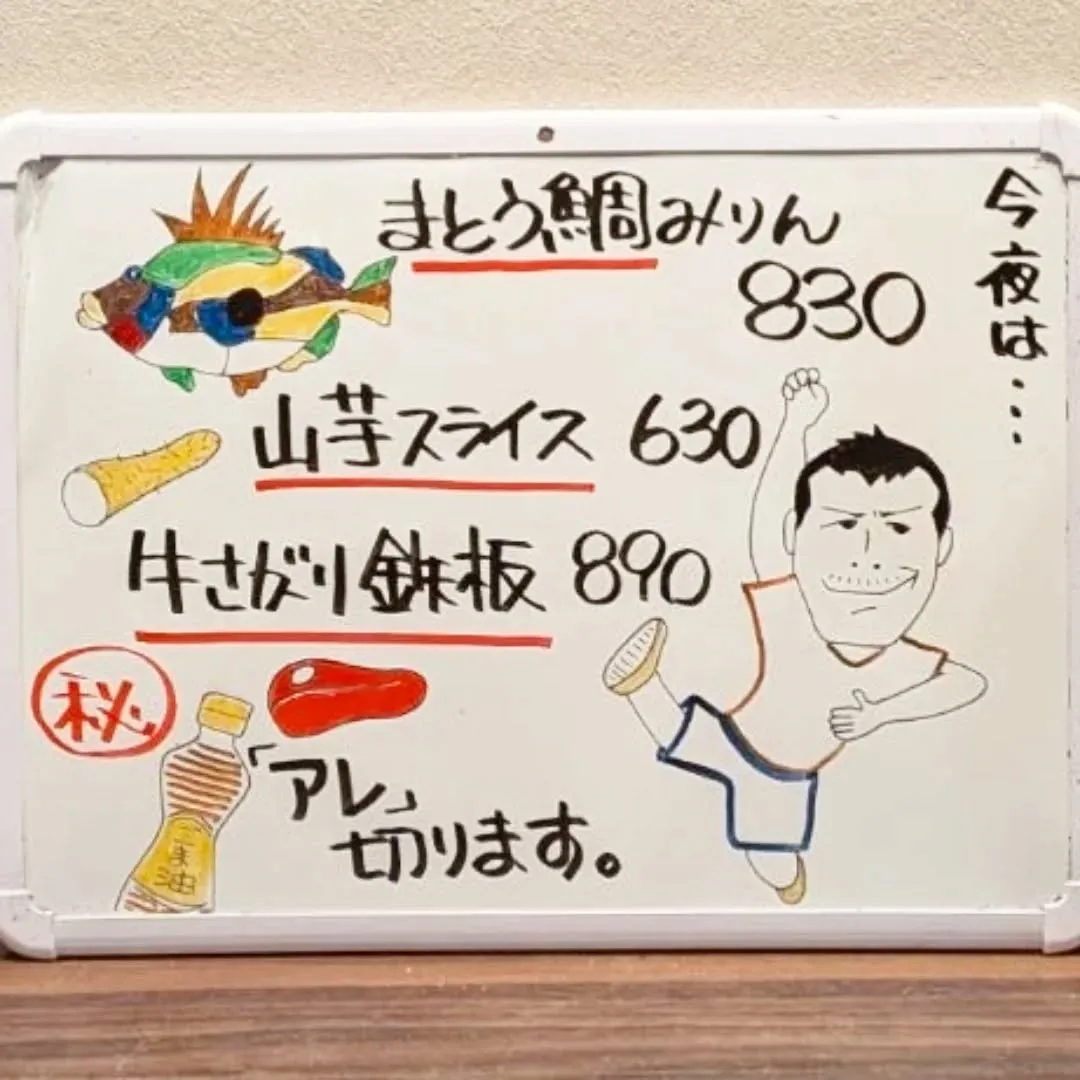 今夜は...
まとう鯛みりん
830
山芋スライス 630
牛さがり鉄板 890
秘
「アレ」
切ります。
ごま油